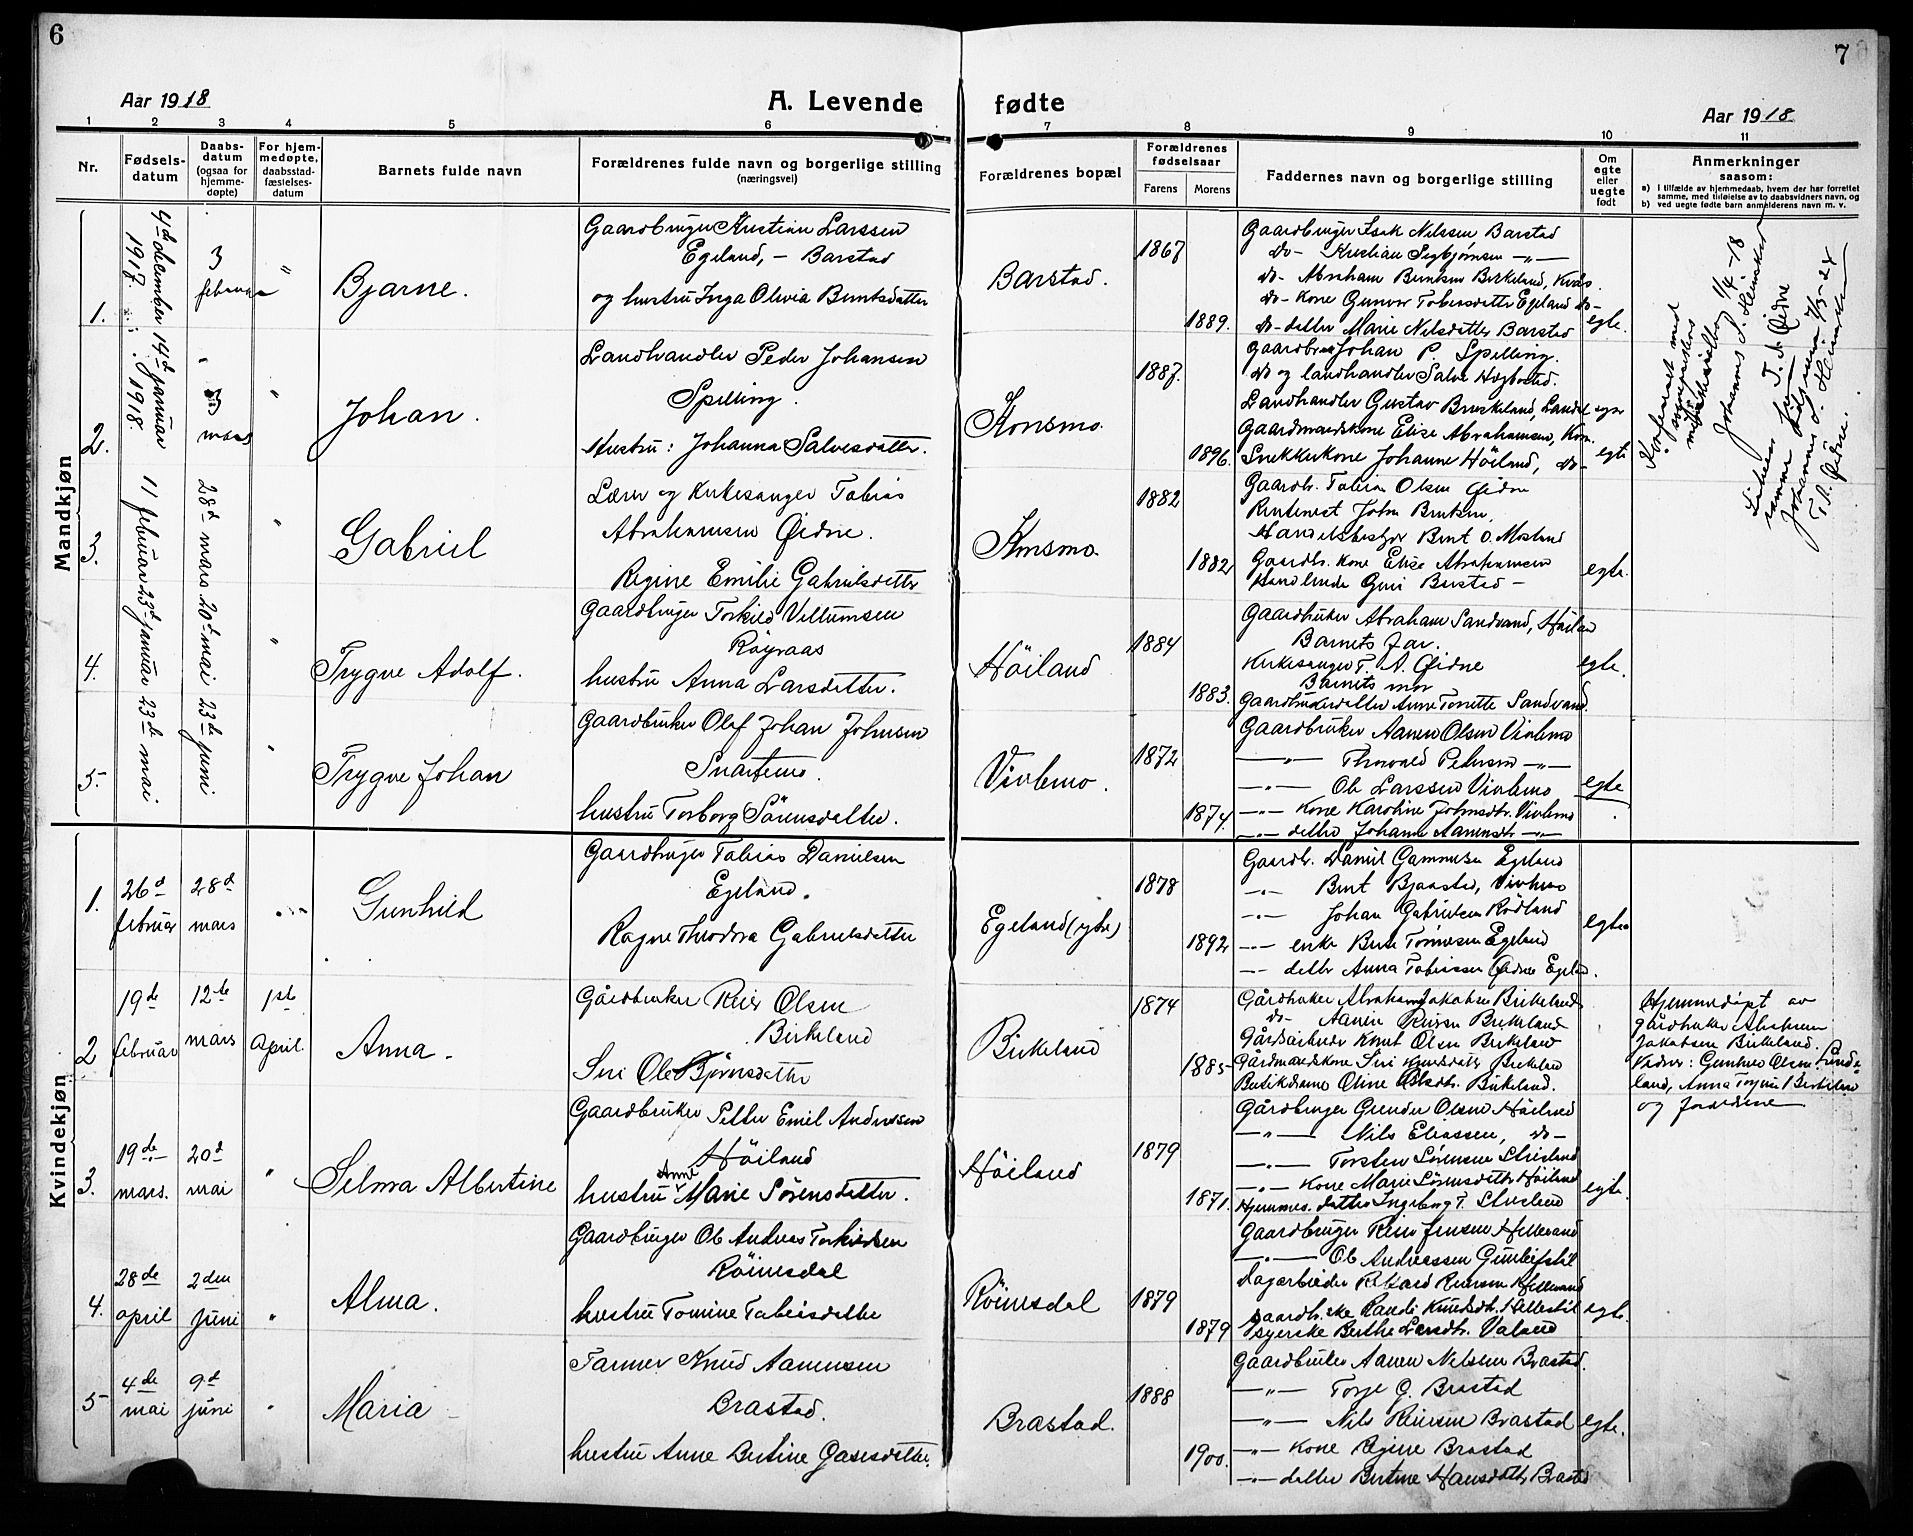 6
7
Aar 1918
A. Levende fødte
Aar 1918
1 2 3 4 5 6 7 8 9 10 11
Nr.
Fødsels-datum
Daabs-datum (ogsaa for hjemme-døpte)
For hjem-medøpte, daabsstad-fæstelses-datum
Barnets fulde navn
Forældrenes fulde navn og borgerlige stilling (næringsvei)
Forældrenes bopæl
Forældrenes fødselsaar
Farens
Morens
Faddernes navn og borgerlige stilling
Om egte eller uegte født
Anmerkninger saasom:
a) i tilfælde av hjemmedaab, hvem der har forrettet samme, med tilføielse av to daabsvidners navn, og
b) ved uegte fødte barn anmelderens navn m. v.
Mandkjøn
1.
4de december 1917
3 februar
"
Bjarne.
Gaardbruger Kristian Larssen
Egeland, - Barstad
og hustru Inga Olivia Berntsdatter
Barstad.
1867
1889.
Gaardbruger Isak Nilssen Barstad
do - Kristian Sigbjørnsen - " -
do - Abraham Berntsen Birkeland, Kvås.
do - kone Gunvor Tobiasdatter Egeland do -
do - datter Marie Nilsdatter Barstad
egte.
2.
14de januar 1918.
3 mars
"
Johan.
Landhandler Peder Johansen
Spilling.
Hustru: Johanna Salvesdatter.
Konsmo.
1887.
1896.
Johan P. Spilling.
do og landhandler Salve
Landhandler Gustav
Gaardmandskone Elise Abrahamsen, Kon.
Snekkerkone Johanne Höiland, do -
egte
3.
11 februar
28de mars
"
Gabriel
Lærer og Kirkesanger Tobias
Abrahamsen Øidne.
Regine Emilie Gabrielsdatter
Konsmo.
1882
1882
Gaardbr. Tobias Olsen Øidne
Rentenist John Berntsen,
Bernt O. Mosland
Gaardbr. kone Elise Abrahamsen
egte.
4.
23de januar
20de mai
"
Trygve Adolf.
Gaardbruger Torkild Villumsen
Röyraas
hustru Anna Larsdatter.
Höiland
1884
1883.
Gaardbruker Abraham Sandvand, Höiland
Barnets far.
Kirkesanger T. A. Øidne
Barnets mor
Gaardbrukerdatter Anne Torette Sandvand.
egte.
5.
23de mai
23de juni
"
Trygve Johan
Gaardbruker Olaf Johan Johnsen
Snartemo.
hustru Torborg Sörensdatter.
Vivlemo.
1872
1874.
Gaardbruker Aanen Olsen Vivlemo
- " - Thorvald Petersen - " -
- " - Ole Larssen Vivlemo
- " - kone Karoline Johnsdtr. Vivlemo
- " - datter Johanne Aanensdtr. - " -
egte.
Kvindekjøn
1.
26de februar
28de mars
Gunhild
Gaardbruger Tobias Danielsen
Egeland.
Ragne Theodora Gabrielsdatter
Egeland (ytre)
1878
1892
Gaardbr. Daniel Egeland
- " - Bernt Bjaastad, Vivlemo
- " - Johan Gabrielsen Rödland
- " - enke Berte Tönnesen Egeland
- " - datter Anna Tobiassen Øidne Egeland.
egte.
2
19de februar
12te mars
1ste April.
Anna -
Gårdbruker Reier Olsen
Birkeland
Siri Ole Björnsdatter
Birkeland
1874
1885
Gårdbruker Abraham Jakobsen Birkeland
do - Aanen Reiersen Birkeland
Gårdsarbeider Knut Olsen Birkeland
Gårdmandskone Siri Knutsdatter Birkeland
Butikdame Oline Olsdtr. Birkeland.
Hjemmedöpt av
gårdbruker Abraham
Jakobsen Birkeland.
Vidner: Olsen
land, Anna Birkeland
og forældrene
3.
19de mars.
20de mai
"
Selma Albertine
Gaardbruker Petter Emil Andersen
Höiland
hustru Anne Marie Sörensdatter.
Höiland
1879
1871.
Gårdbruger Gunder Olsen Höiland
- " - Nils Eliassen, do -
- " - Torsten Sörensen
- " - kone Marie Sörensdatter Höiland
Hjemmev. datter Ingeborg T.
egte.
4.
28de april
2den juni
"
Alma.
Gaardbruger Ole Andreas Torkildsen
Röinesdal
hustru Tomine Tobiasdatter
Röinesdal
1879
1879
Gaardbruger Reier Jensen Hellevand
- " - Ole Andreassen
Dagarbeider Rikard Reiersen Hellevand
Gaardbr.ske Randi Knudsdtr.
syerske Berthe Larsdtr. Valand
egte.
5
4de mai
9de juni
"
Maria -
Farmer Knud Aanensen
Brastad.
hustru Anne Bertine Aasesdatter.
Brastad.
1888
1900.
Gaardbruker Aanen Nelsen Brastad.
- " - Torje G. Brastad
- " - Nils Reiersen Brastad
- " - kone Regine Brastad
- " - datter Bertine Hansdatter Brastad
egte.
Konferert med
sogneprestens
ministerialbog 1/4 - 18
Johannes J. Heimskar
T. A. Øidne
Johannes J. Heimskar
T. A. Øidne.